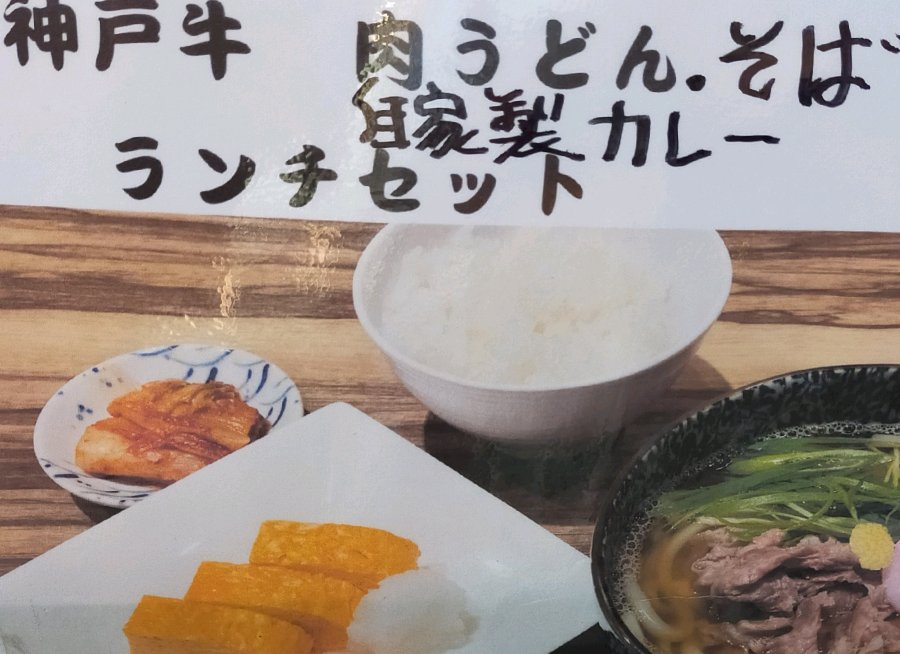 神戸牛 肉うどん.そば
自家製カレー
ランチセット